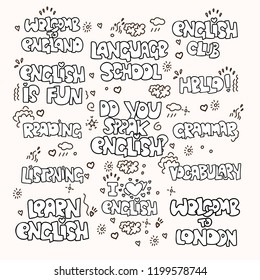 WELCOME
TO
ENGLAND
LANGUAGE
SCHOOL
ENGLISH
CLUB
ENGLISH
IS FUN
DO YOU
SPEAK
ENGLISH?
HELLO!
READING
GRAMMAR
LISTENING
I
ENGLISH
VOCABULARY
LEARN
ENGLISH
WELCOME
TO
LONDON
shutterstock.com · 1199578744